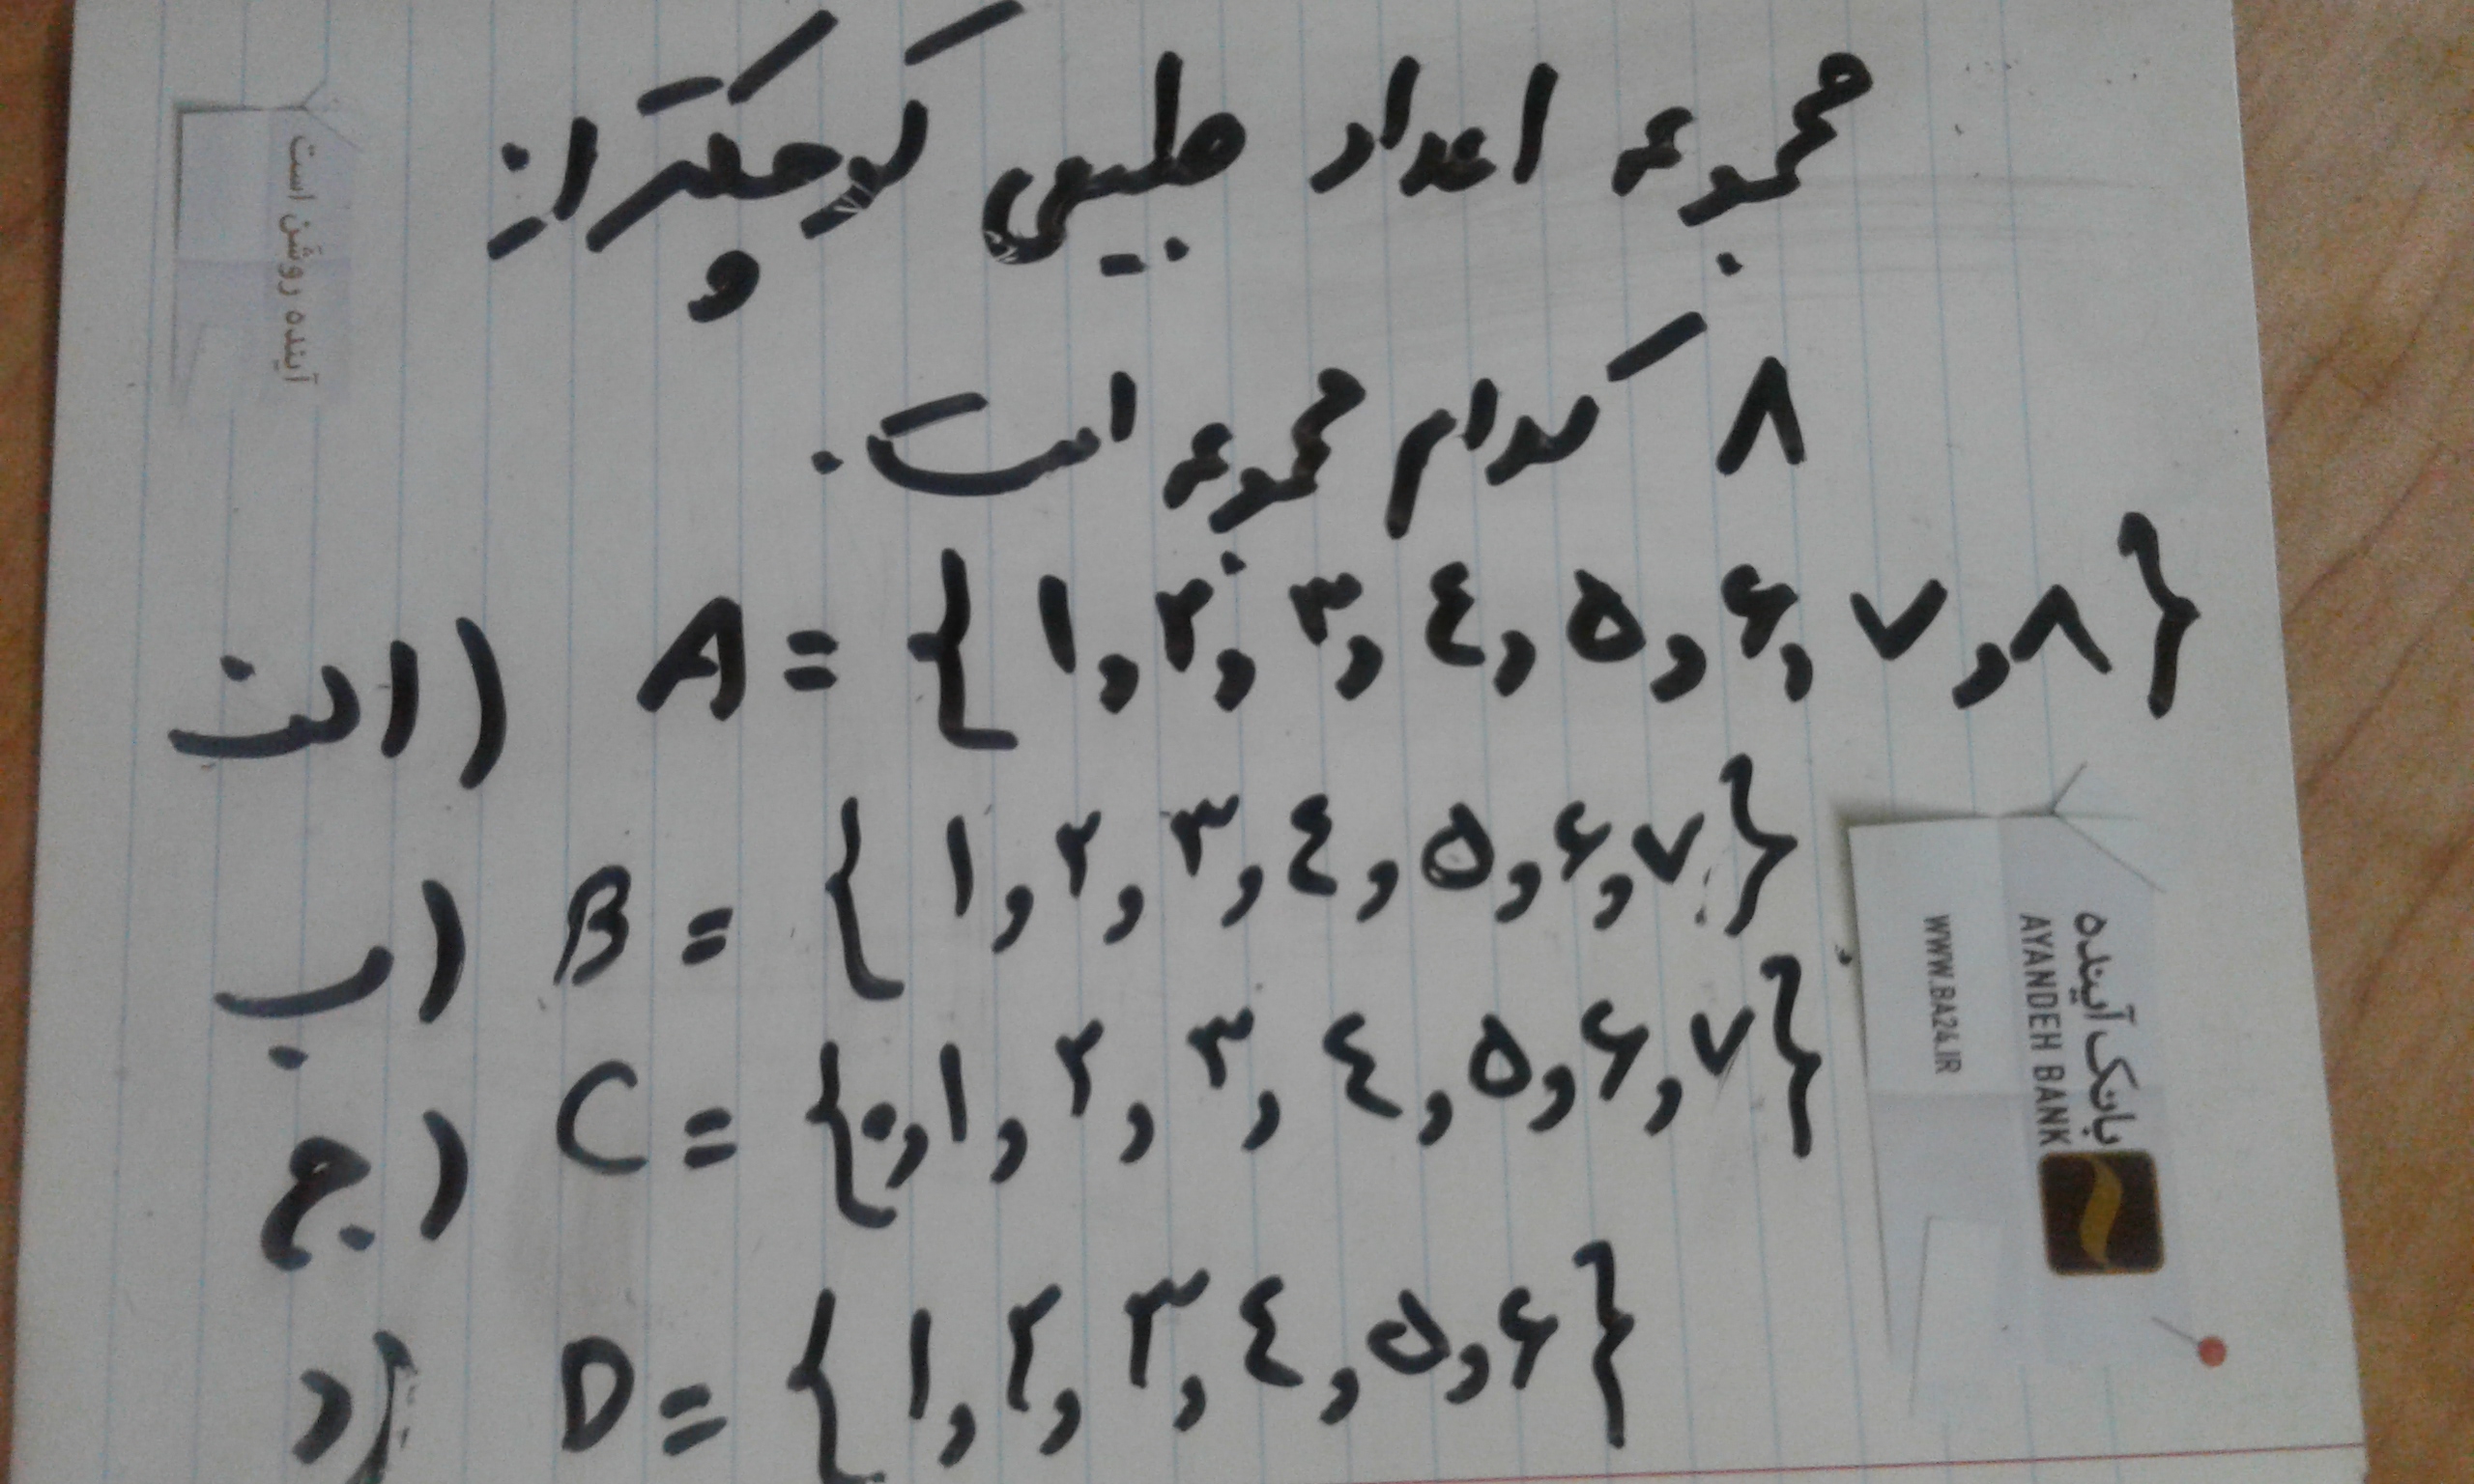 مجموعه اعداد طبیعی کوچکتر از
۸ کدام مجموعه است.
الف) A = {۱,۲,۳,٤,۵,۶,۷,۸}
ب) B = {۱,۲,۳,٤,۵,۶,۷}
ج) C = {۰,۱,۲,۳,٤,۵,۶,۷}
د) D = {۱,۲,۳,٤,۵,۶}
آینده روشن است
بانک آینده
AYANDEH BANK
WWW.BA24.IR